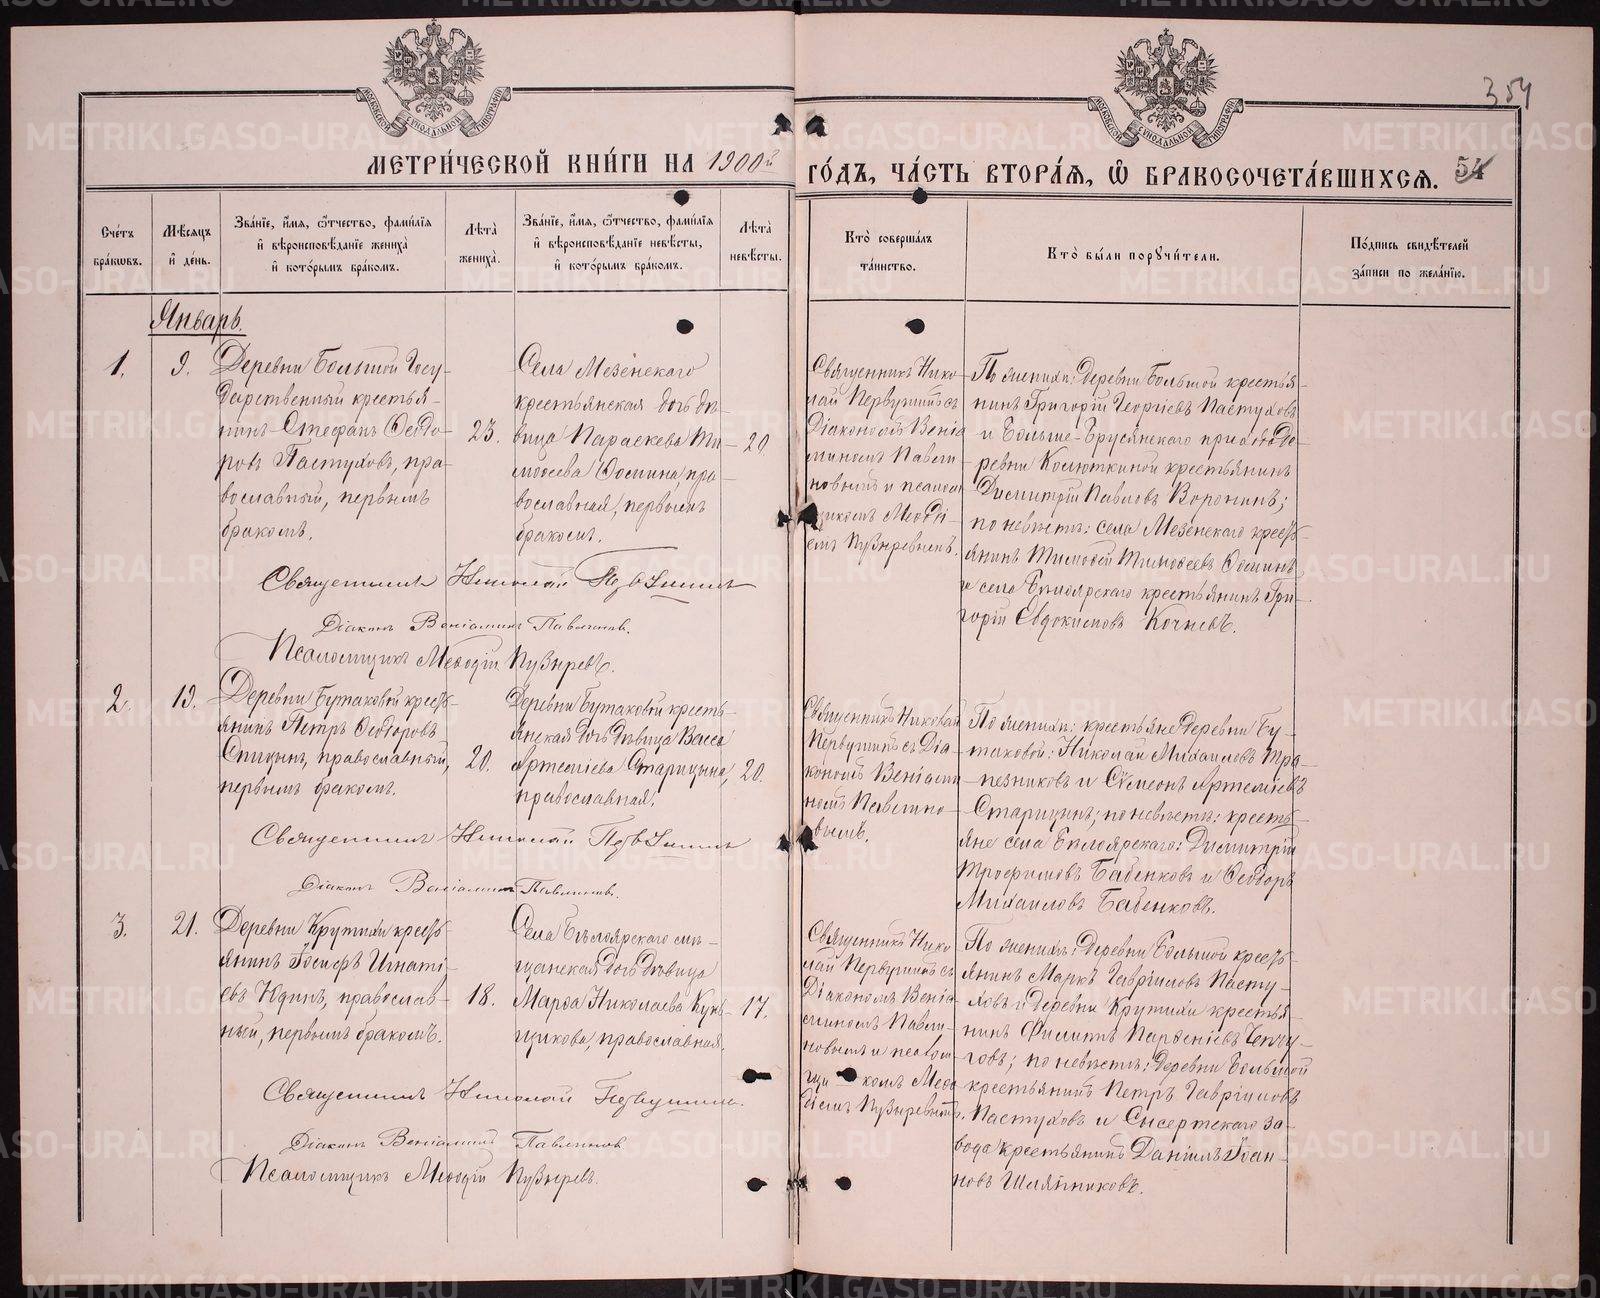 354
МЕТРИ́ЧЕСКОЙ КНИ́ГИ НА 1900й
ГО́ДЪ, ЧА́СТЬ ВТОРА́Я, Ѡ БРАКОСОЧЕТА́ВШИХСЯ. 54
Сче́тъ бра́кѡвъ.
Мѣ́сяцъ и҆ де́нь.
Зва́нїе, и҆́мя, ѻ҆́тчество, фами́лїя
и҆ вѣроисповѣ́данїе жениха̀
и҆ кото́рымъ бра́комъ.
Лѣ́та жениха̀.
Зва́нїе, и҆́мя, ѻ҆́тчество, фами́лїя
и҆ вѣроисповѣ́данїе невѣ́сты,
и҆ кото́рымъ бра́комъ.
Лѣ́та невѣ́сты.
Кто̀ соверша́лъ
та́инство.
Кто̀ бы́ли порꙋчи́тели.
По́дпись свидѣ́телей
за́писи по жела́нїю.
Январь.
1.
9.
Деревни Большой Госу-
дарственный крестья-
нинъ Стефанъ Ѳеодо-
ровъ Пастуховъ, пра-
вославный, первымъ
бракомъ.
23.
Села Мезенскаго
крестьянская дочь дѣ-
вица Параскева Ти-
моѳеева Ѳомина, пра-
вославная, первымъ
бракомъ.
20.
Священникъ Нико-
лай Первушинъ съ
Діакономъ Веніа
миномъ Павли-
новымъ и псалом
щикомъ Меѳоді-
емъ Пузыревымъ.
По женихѣ: Деревни Большой крестья-
нинъ Григорій Георгіевъ Пастуховъ
и Больше-Брусянскаго прихода де-
ревни Колюткиной крестьянинъ
Димитрій Павловъ Воронинъ;
по невѣстѣ: села Мезенскаго кресть-
янинъ Тимоѳей Тимоѳеевъ Ѳоминъ
и села Бѣлоярскаго крестьянинъ Гри-
горій Евдокимовъ Кочневъ.
Священникъ Николай Первушинъ
Діаконъ Веніаминъ Павлиновъ.
Псаломщикъ Меѳодій Пузыревъ.
2.
19.
Деревни Бутаковой кресть-
янинъ Петръ Ѳеодоровъ
Спицынъ, православный,
первымъ бракомъ.
20.
Деревни Бутаковой кресть-
янская дочь дѣвица Васса
Артеміева Старицына,
православная.
20.
Священникъ Николай
Первушинъ съ Діа-
кономъ Веніами
номъ Павлино-
вымъ.
По женихѣ: крестьяне деревни Бу-
таковой: Николай Михаиловъ Тра-
пезниковъ и Сѵмеонъ Артеміевъ
Старицынъ; по невѣстѣ: кресть-
яне села Бѣлоярскаго: Димитрій
Трофимовъ Бабенковъ и Ѳеодоръ
Михаиловъ Бабенковъ.
Священникъ Николай Первушинъ
Діаконъ Веніаминъ Павлиновъ.
3.
21.
Деревни Крутихи кресть-
янинъ Іосифъ Игнаті-
евъ Юдинъ, православ-
ный, первымъ бракомъ.
18.
Села Бѣлоярскаго мѣ-
щанская дочь дѣвица
Марѳа Николаева Кун-
щикова, православная.
17.
Священникъ Нико
лай Первушинъ съ
Діакономъ Веніа-
миномъ Павли-
новымъ и псалом-
щикомъ Меѳо
діемъ Пузыревымъ.
По женихѣ: Деревни Большой кресть-
янинъ Маркъ Гавріиловъ Пасту-
ховъ и Деревни Крутихи крестья-
нинъ Филиппъ Парѳеніевъ Чепчу-
говъ; по невѣстѣ: Деревни Большой
крестьянинъ Петръ Гавріиловъ
Пастуховъ и Сысертскаго за-
вода крестьянинъ Даніилъ Іоан-
новъ Шляпниковъ.
Священникъ Николай Первушинъ.
Діаконъ Веніаминъ Павлиновъ
Псаломщикъ Меѳодій Пузыревъ.